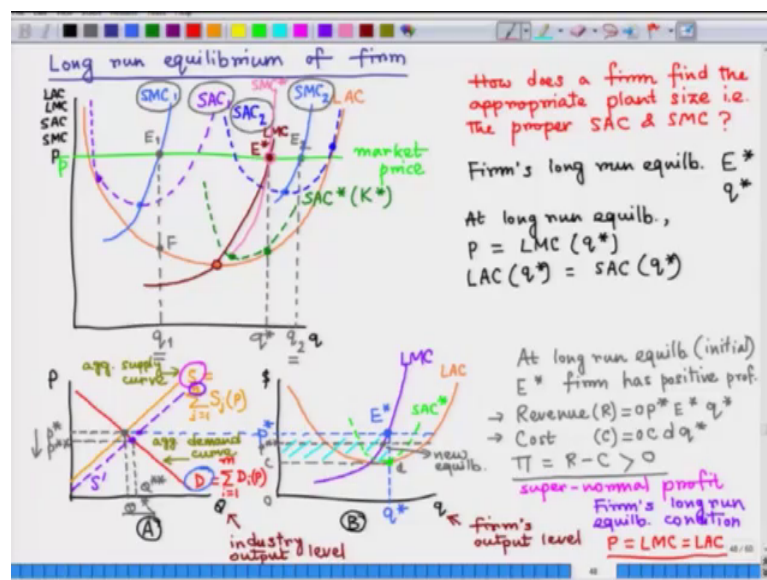 Long run equilibrium of firm
LAC
LMC
SAC
SMC
SMC1
SAC1
SAC2
SMC*
SMC2
LAC
LMC
P
P̄
E1
E*
E2
market price
SAC*(K*)
F
q1
q*
q2
q
How does a firm find the
appropriate plant size i.e.
the proper SAC & SMC ?
Firm's long run equilb. E*
q*
At long run equilb.,
P = LMC (q*)
LAC (q*) = SAC (q*)
P
agg. supply
curve
S =
Σ Sj(P)
j=1
P*
P**
agg. demand
curve
S'
Q**
Q*
D = Σ Di(P)
m
i=1
Q
A
industry
output level
$
LMC
LAC
SAC*
E*
P*
P**
C
d
new
equilb.
0
q*
q
B
firm's
output level
At long run equilb (initial)
E* firm has positive prof.
→ Revenue (R) = OP* E* q*
→ Cost (C) = OC d q*
Π = R - C > 0
super-normal profit
Firm's long run
equilb. condition
P = LMC = LAC
48
48 / 60